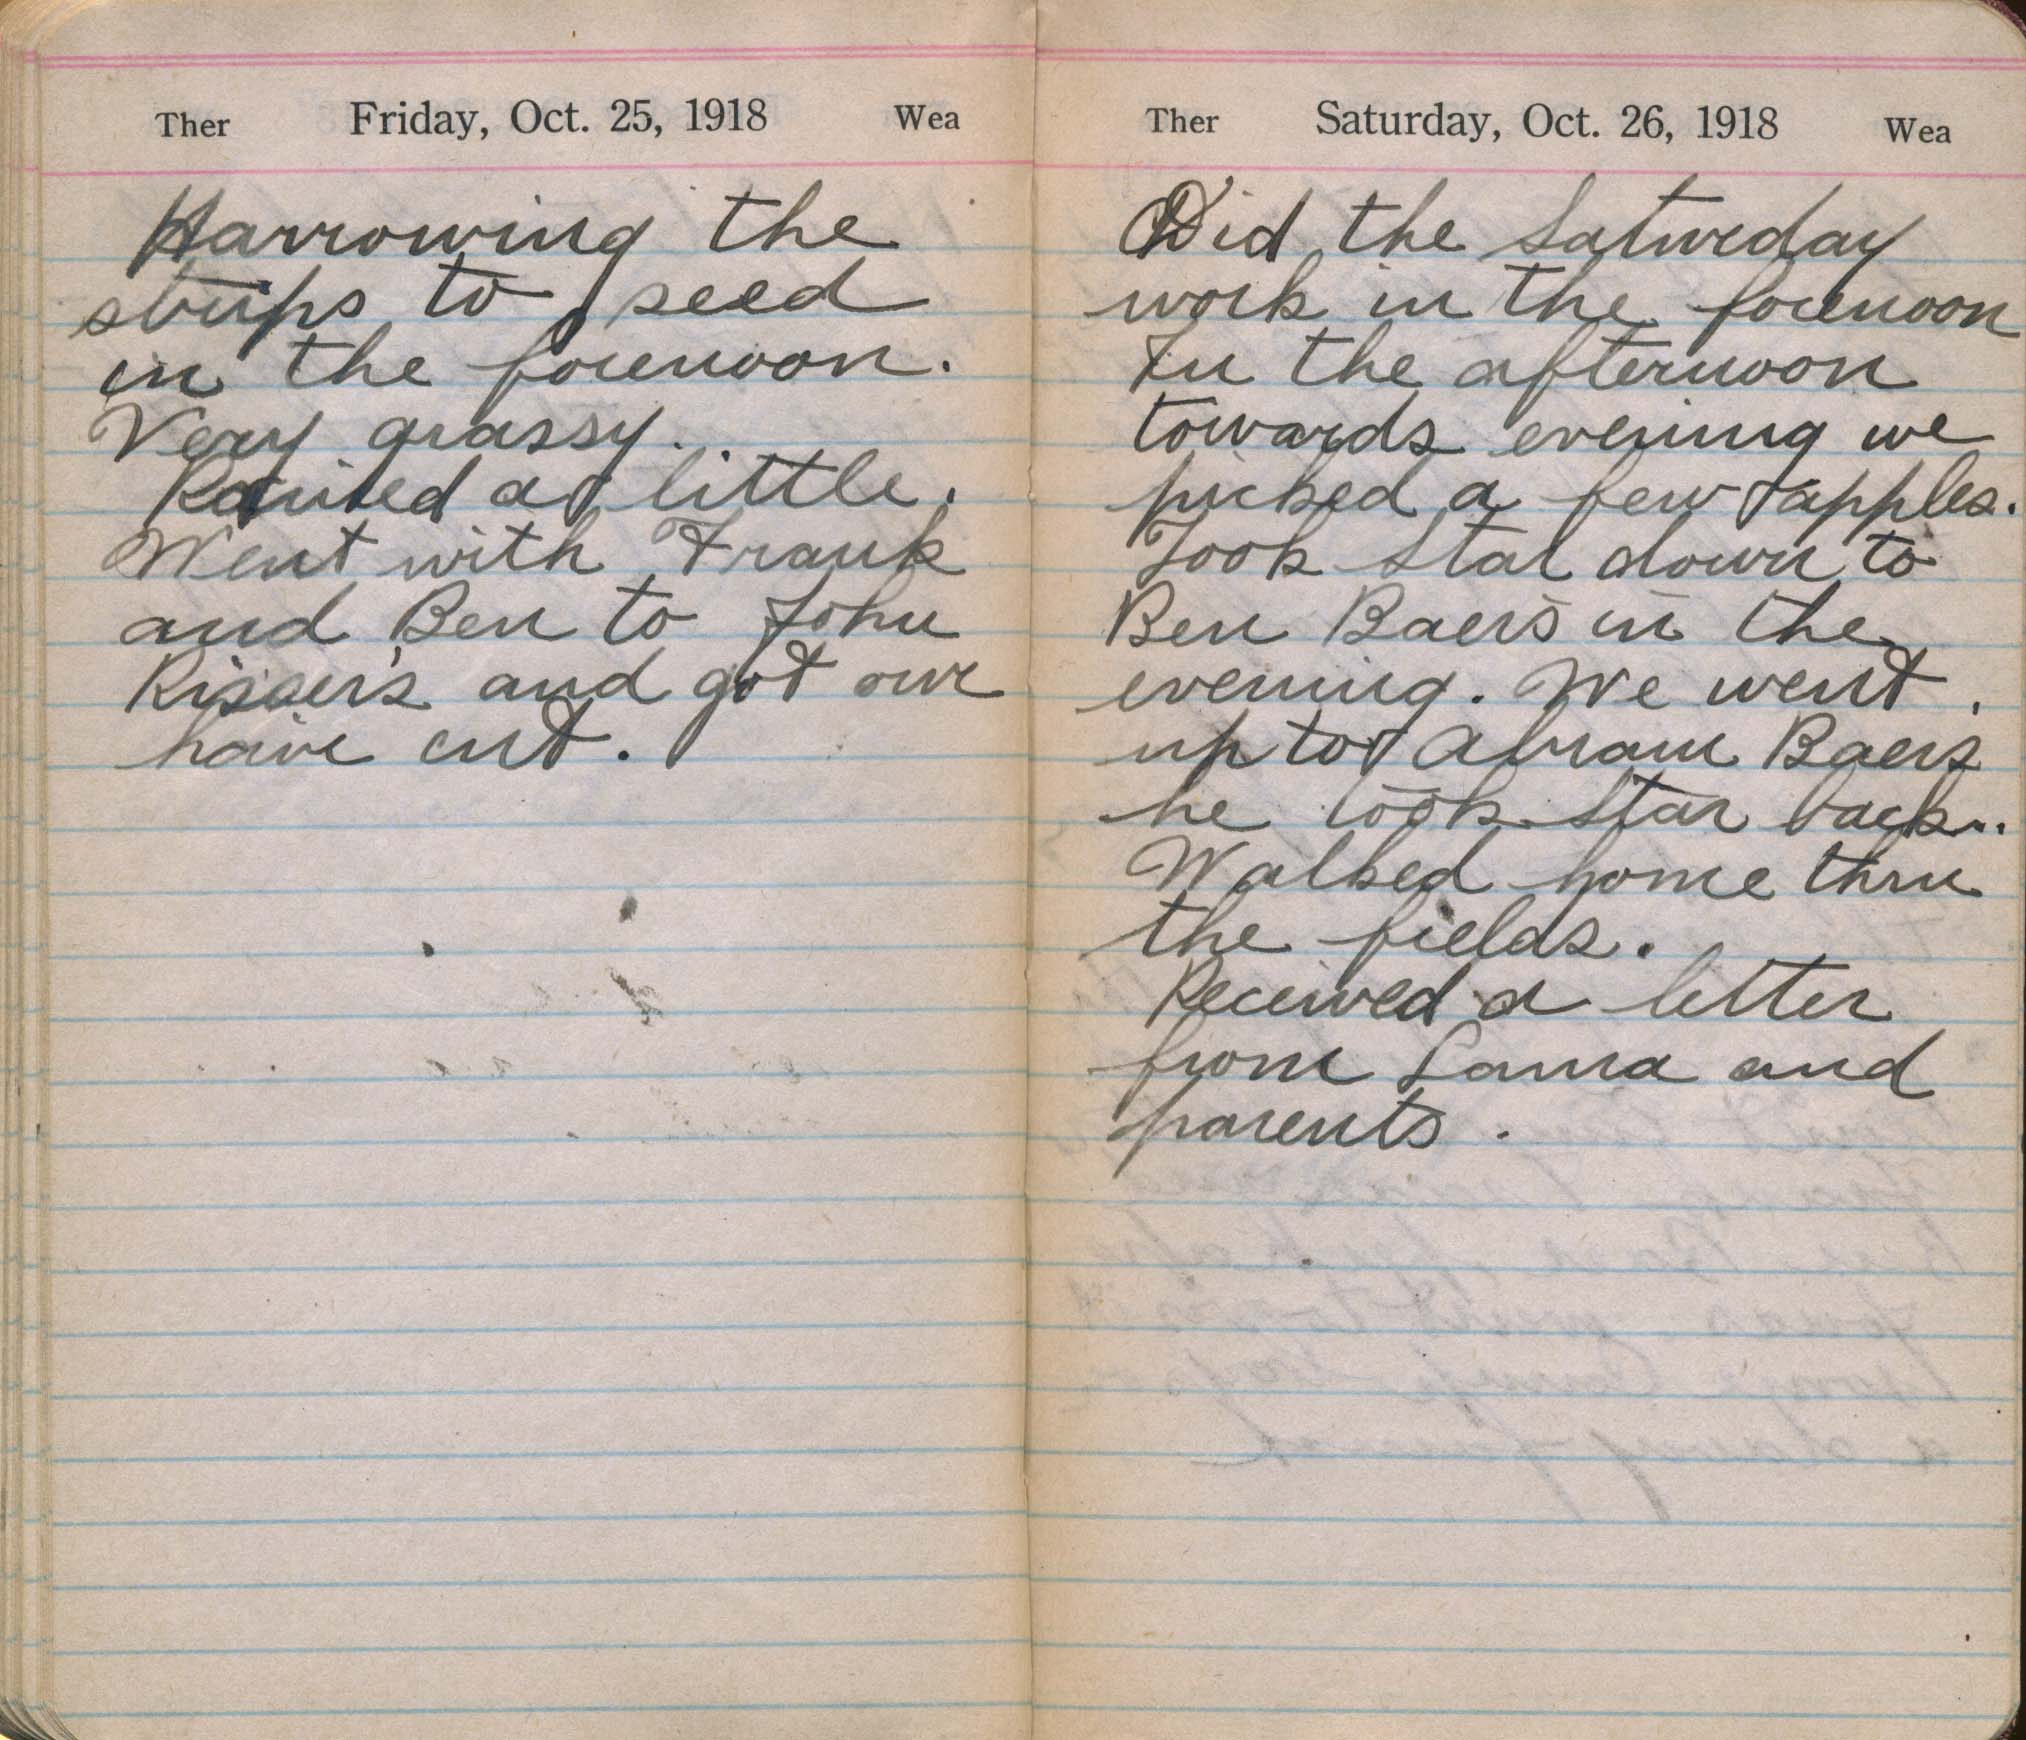 Ther Friday, Oct. 25, 1918 Wea
Harrowing the
strips to seed
in the forenoon.
Very grassy.
Rained a little.
Went with Frank
and Ben to John
Risser's and got our
haire cut.
Ther Saturday, Oct. 26, 1918 Wea
Did the Saturday
work in the forenoon
In the afternoon
towards evening we
picked a few apples.
Took Star down to
Ben Baers in the
evening. We went
up to Abram Baers
he took Star back..
Walked home thru
the fields.
Received a letter
from Lama and
parents.